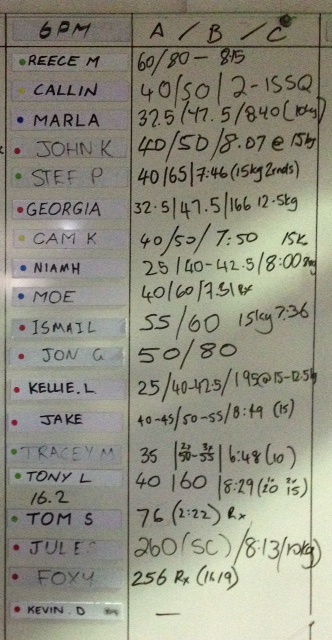 6PM A / B / C
REECE M 60/80 - 8:15
CALLIN 40/50 | 2-155Q
MARLA 32.5/47.5/8:40 (10kg)
JOHN K 40/50/8.07 @ 15kg
STEF P 40/65/7:46 (15kg 2rnds)
GEORGIA 32.5/47.5/166 12.5kg
CAM K 40/50/7:50 15K
NIAMH 25/40-42.5/8:00
MOE 40/60/7.51 Rx
ISMAIL 55/60 15kg 7:36
JON G 50/80
KELLIE.L 25/40-42.5/195@15-12.5kg
JAKE 40-45/50-55/8:49 (15)
TRACEY M 35 | 50-55 | 6:48 (10)
TONY L 40 | 60 | 8:29 (20 15)
16.2
TOM S 76 (2:22) Rx
JULES 260 (SC) /8:13/10kg)
FOXY 256 Rx (16.19)
KEVIN.D —